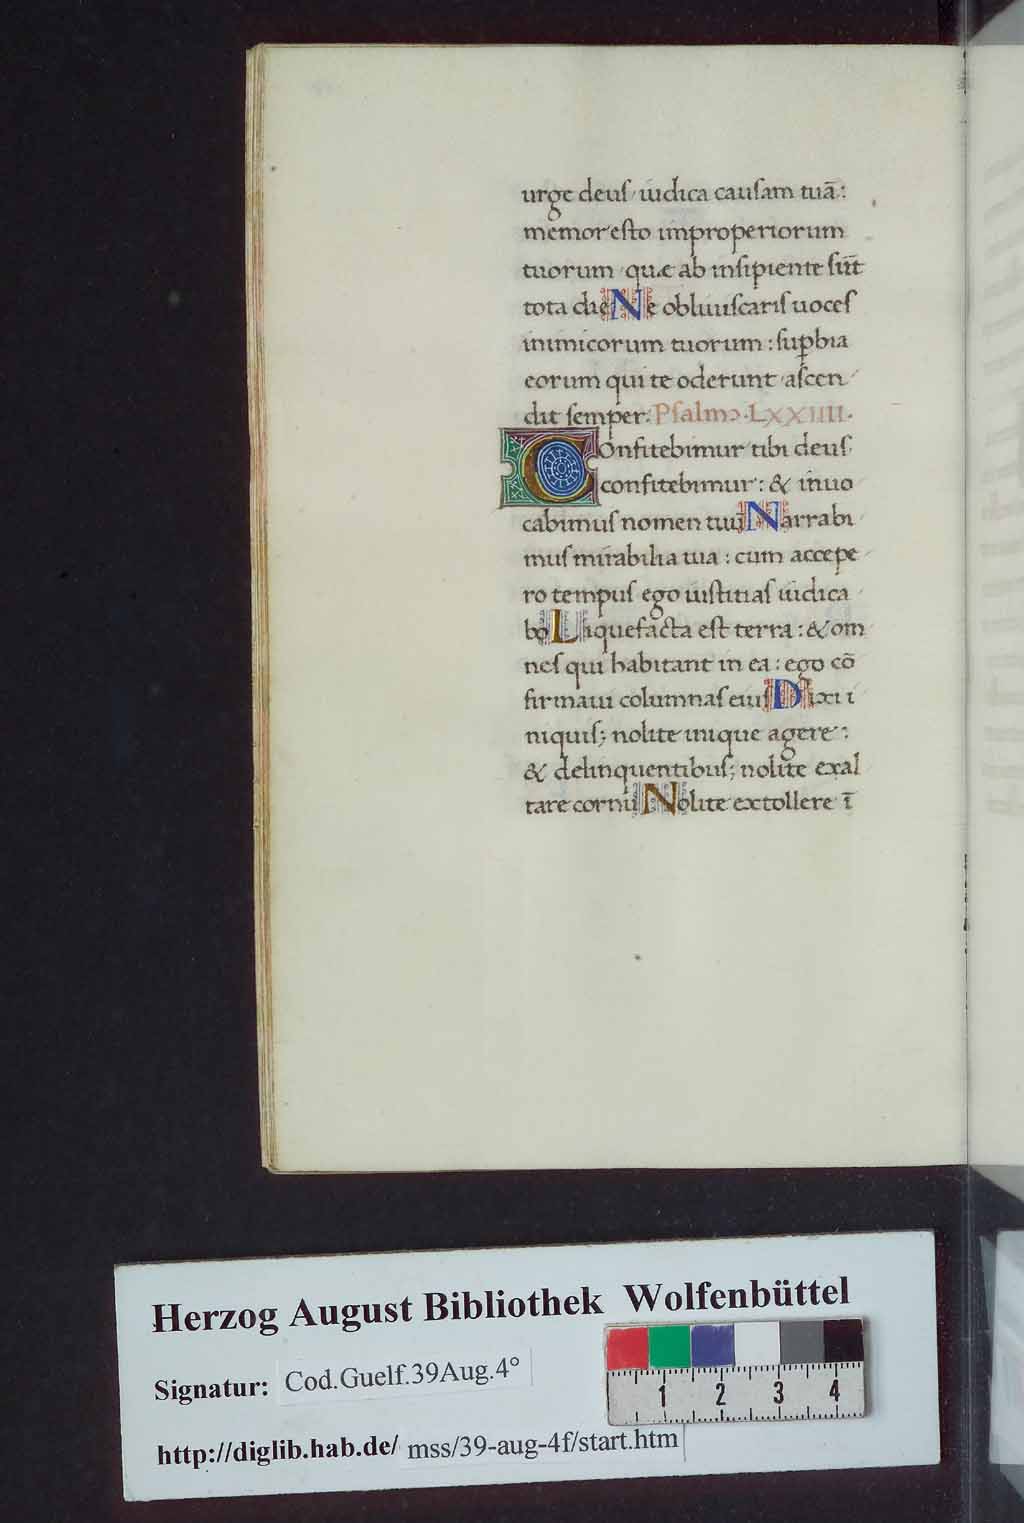 urge deus iudica causam tuā:
memor esto improperiorum
tuorum quæ ab insipiente sūt
tota die Ne obliuiscaris uoces
inimicorum tuorum: suꝑbia
eorum qui te oderunt ascen
dit semper. Psalmꝰ. LXXIIII.
Confitebimur tibi deus
confitebimur: & inuo
cabimus nomen tuū Narrabi
mus mirabilia tua: cum accepe
ro tempus ego iustitias iudica
bo Liquefacta est terra: & om
nes qui habitant in ea: ego cō
firmaui columnas eius Dixi i
niquis; nolite inique agere:
& delinquentibus; nolite exal
tare cornu Nolite extollere ī
Herzog August Bibliothek Wolfenbüttel
Signatur: Cod.Guelf.39Aug.4°
1 2 3 4
http://diglib.hab.de/ mss/39-aug-4f/start.htm